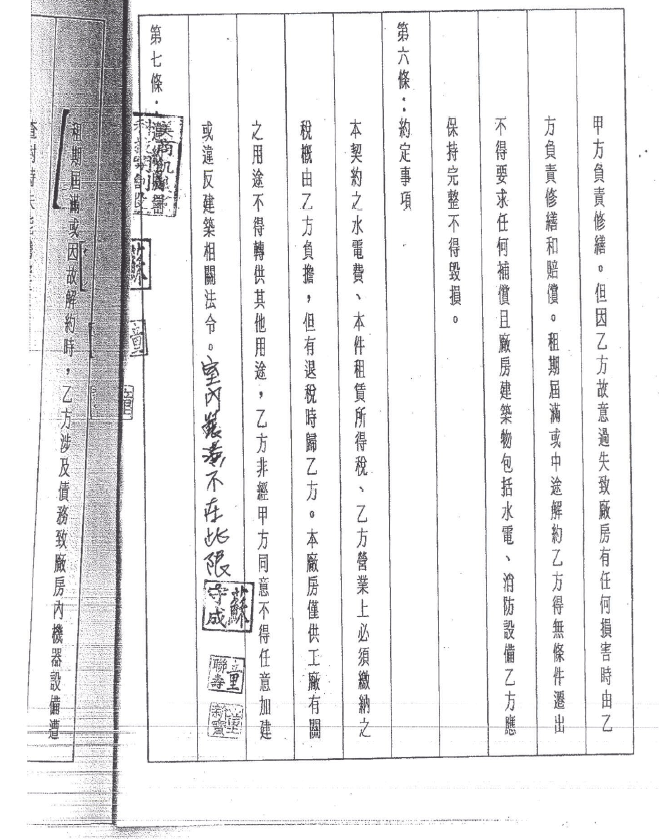 甲方負責修繕。但因乙方故意過失致廠房有任何損害時由乙
方負責修繕和賠償。租期屆滿或中途解約乙方得無條件遷出
不得要求任何補償且廠房建築物包括水電、消防設備乙方應
保持完整不得毀損。
第六條：約定事項
本契約之水電費、本件租賃所得稅、乙方營業上必須繳納之
稅概由乙方負擔，但有退稅時歸乙方。本廠房僅供工廠有關
之用途不得轉供其他用途，乙方非經甲方同意不得任意加建
或違反建築相關法令。室內裝潢不在此限
蘇守成
童聯壽
第七條：
蘇
童
租期屆滿或因故解約時，乙方涉及債務致廠房內機器設備遭